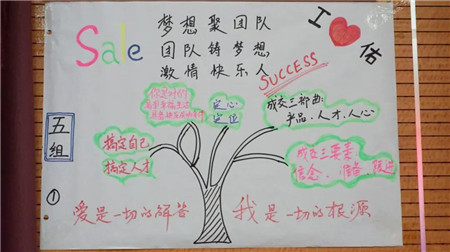 Sale
梦想聚团队
团队铸梦想
激情快乐人
I ❤ 佑
SUCCESS
五组
①
搞定自己
搞定人才
定心
定位
成交三部曲:
产品、人才、人心
成交三要素
信念、
跟进
爱是一切的解答
我是一切的根源